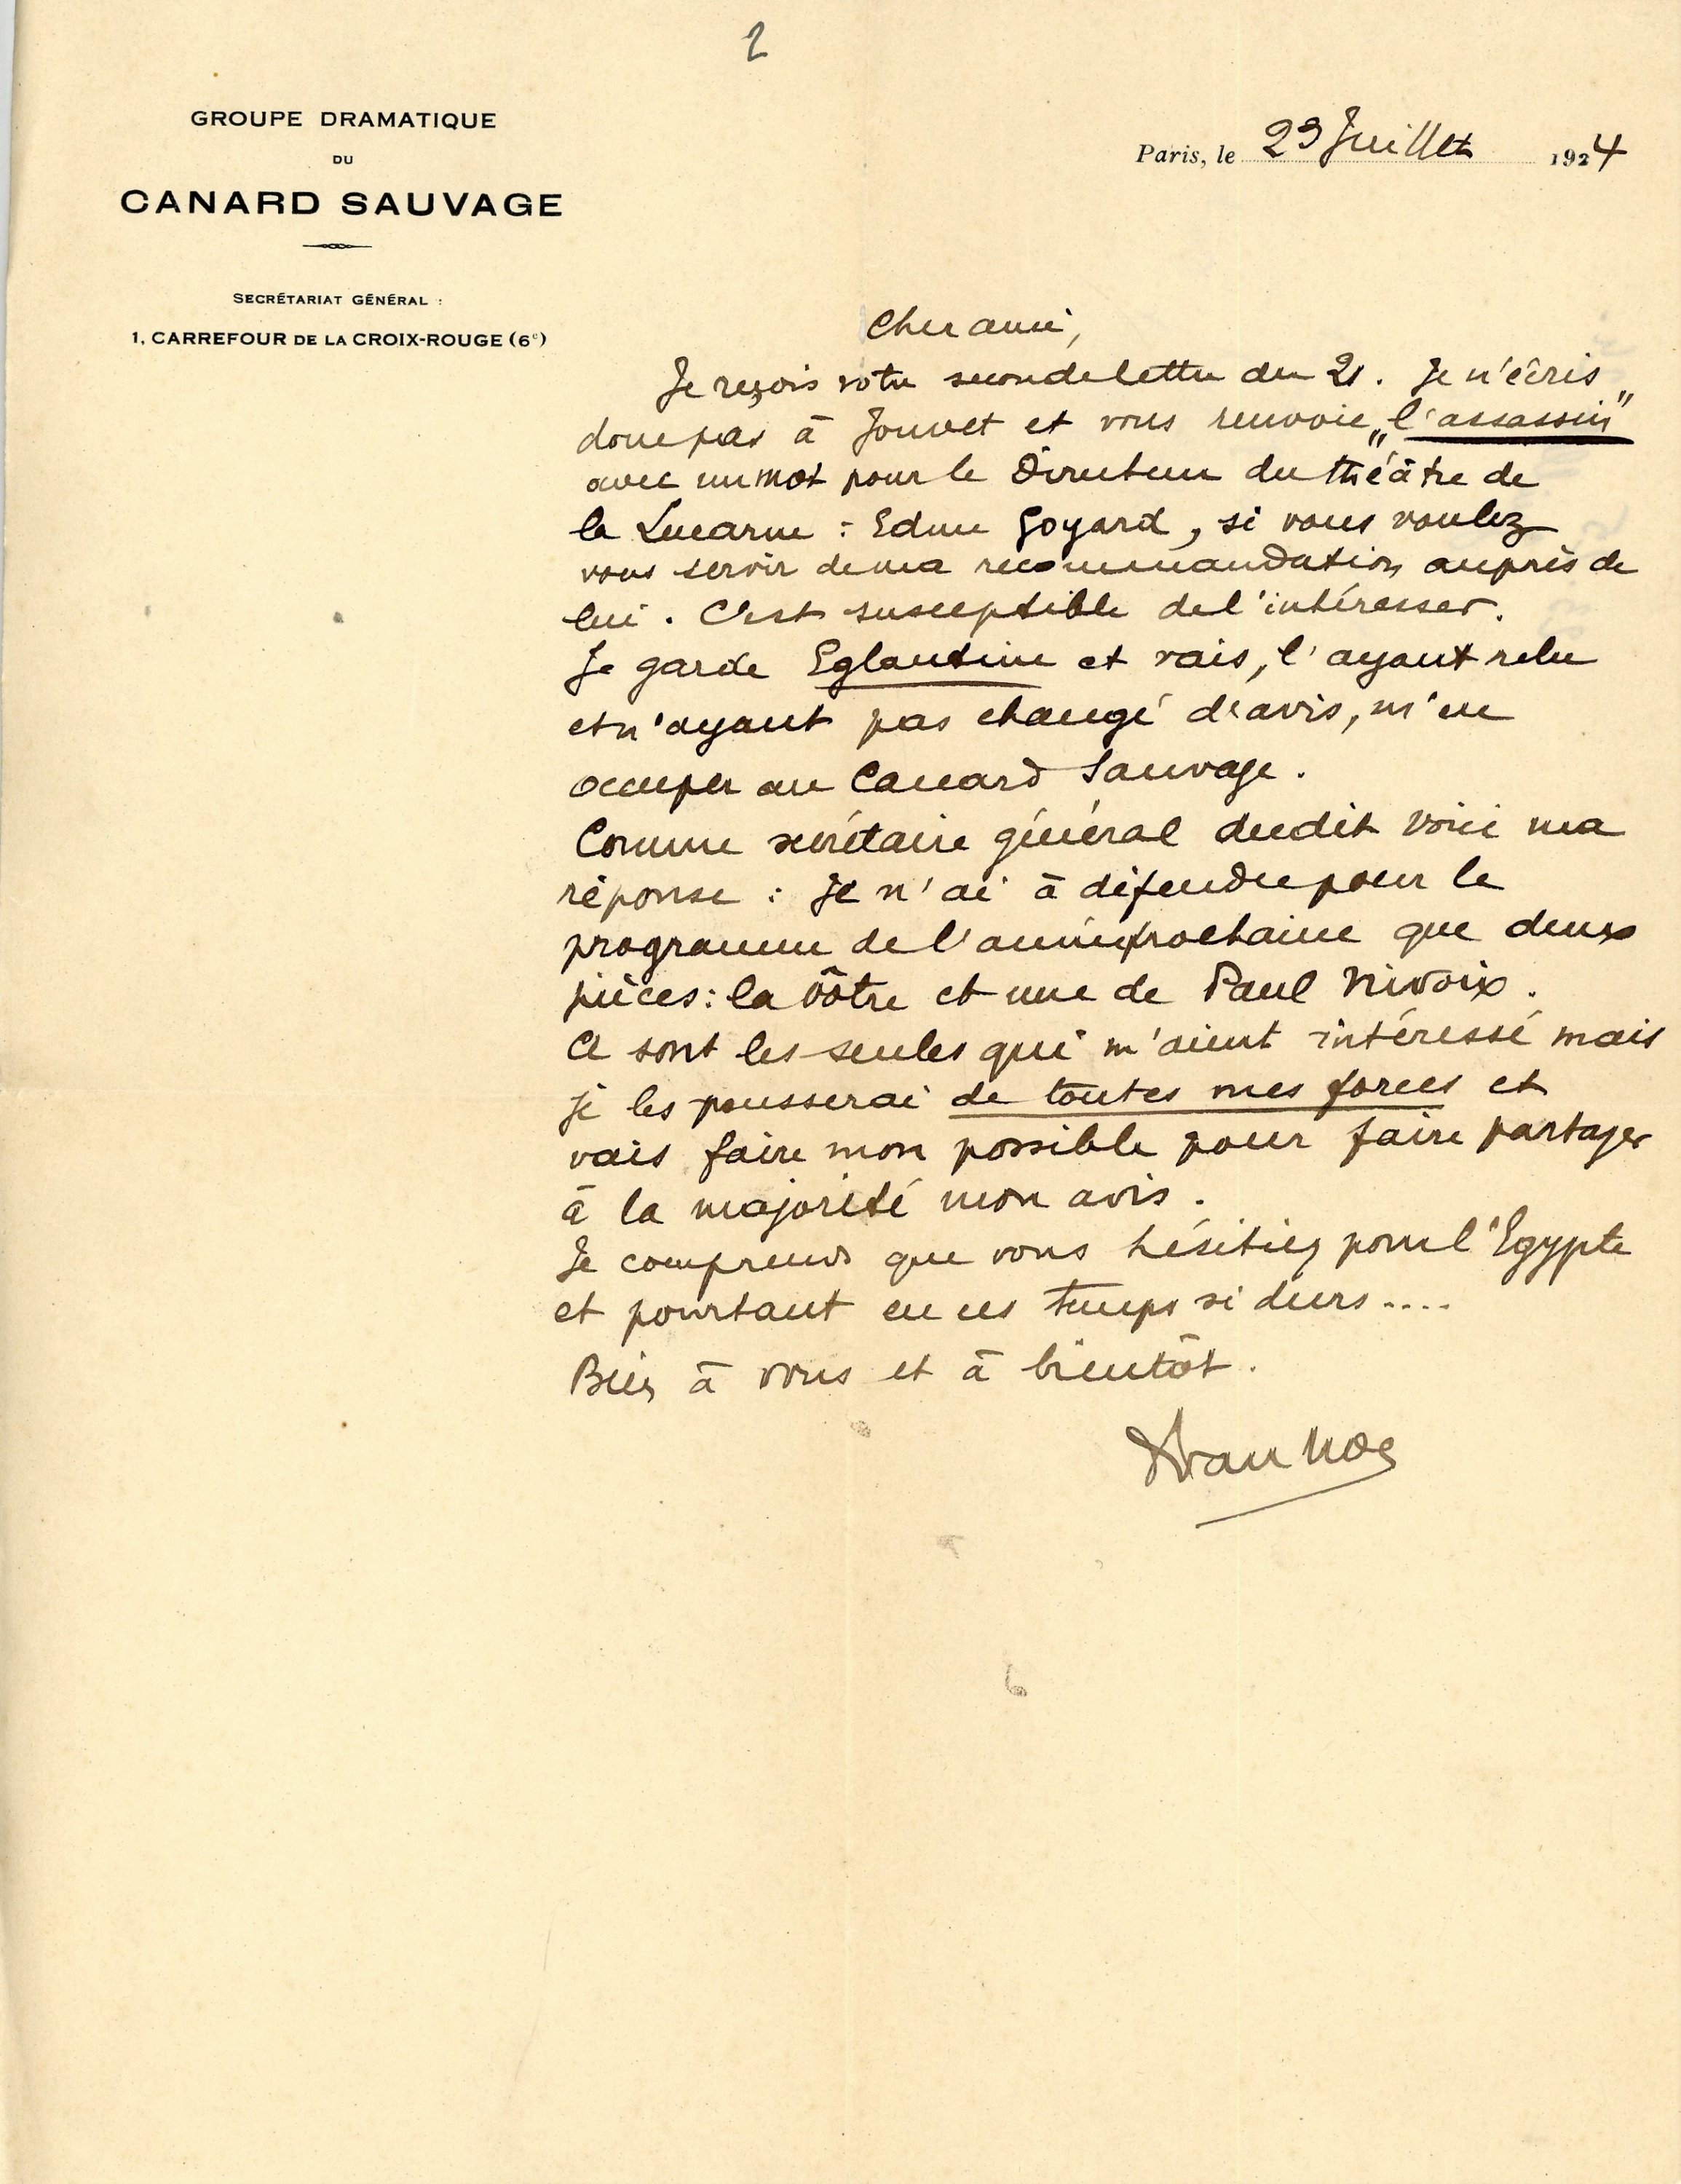 2
GROUPE DRAMATIQUE
DU
CANARD SAUVAGE
SECRÉTARIAT GÉNÉRAL :
1, CARREFOUR DE LA CROIX-ROUGE (6e)
Paris, le 23 Juillet 1924
Cher ami,
Je reçois votre seconde lettre du 21. Je n'écris
donc pas à Jouvet et vous renvoie „l'assassin"
avec un mot pour le Directeur du théâtre de
la Lucarne : Edme Goyard, si vous voulez
vous servir de ma recommandation auprès de
lui. C'est susceptible de l'intéresser.
Je garde Eglantine et vais, l'ayant relu
et n'ayant pas changé d'avis, m'en
occuper au Canard Sauvage.
Comme secrétaire général dudit voici ma
réponse : Je n'ai à défendre pour le
programme de l'année prochaine que deux
pièces : la vôtre et une de Paul Nivoix.
Ce sont les seules qui m'aient intéressé mais
je les pousserai de toutes mes forces et
vais faire mon possible pour faire partager
à la majorité mon avis.
Je comprends que vous hésitiez pour l'Egypte
et pourtant en ces temps si durs....
Bien à vous et à bientôt.
Yvan Noé